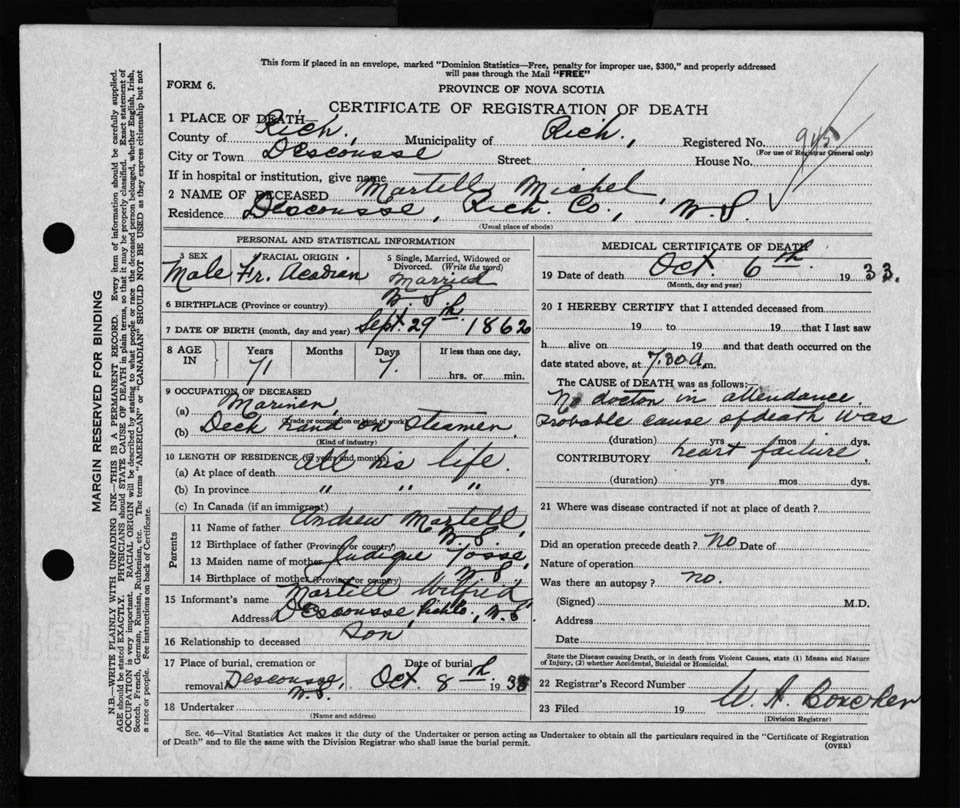 This form if placed in an envelope, marked "Dominion Statistics—Free, penalty for improper use, $300," and properly addressed
will pass through the Mail "FREE"
FORM 6.
PROVINCE OF NOVA SCOTIA
CERTIFICATE OF REGISTRATION OF DEATH
1 PLACE OF DEATH—
County of Rich, Municipality of Rich, Registered No. 945
(For use of Registrar General only)
City or Town Descousse Street House No.
If in hospital or institution, give name
2 NAME OF DECEASED Martell, Michel
Residence Descousse, Rich. Co., N.S.
(Usual place of abode)
PERSONAL AND STATISTICAL INFORMATION
3 SEX Male
4 RACIAL ORIGIN Fr. Acadian
5 Single, Married, Widowed or Divorced. (Write the word) Married
6 BIRTHPLACE (Province or country) N.S.
7 DATE OF BIRTH (month, day and year) Sept. 29th, 1862
8 AGE IN Years 71 Months Days 7. If less than one day, hrs. or min.
9 OCCUPATION OF DECEASED
(a) Mariner,
(Trade or occupation or kind of work)
(b) Deck hand on Steamer,
(Kind of industry)
10 LENGTH OF RESIDENCE (in years and months)
(a) At place of death All his life.
(b) In province " " "
(c) In Canada (if an immigrant)
Parents
11 Name of father Andrew Martell,
12 Birthplace of father (Province or country) N.S.
13 Maiden name of mother
14 Birthplace of mother (Province or country) N.S.
15 Informant's name Martell Wilfrid
Address Descousse, Rich Co., N.S.
16 Relationship to deceased Son,
17 Place of burial, cremation or removal Descousse, N.S.
Date of burial Oct. 8th. 1933
18 Undertaker
(Name and address)
MEDICAL CERTIFICATE OF DEATH
19 Date of death Oct. 6th. 1933.
(Month, day and year)
20 I HEREBY CERTIFY that I attended deceased from
19 to 19 that I last saw
h alive on 19 and that death occurred on the
date stated above, at 7.30 a.m.
The CAUSE of DEATH was as follows:—
No doctor in attendance.
Probable cause of death was
(duration) yrs mos dys.
CONTRIBUTORY heart failure,
(duration) yrs mos dys.
21 Where was disease contracted if not at place of death?
Did an operation precede death? no Date of
Nature of operation
Was there an autopsy? no.
(Signed) M.D.
Address
Date
State the Disease causing Death, or in death from Violent Causes, state (1) Means and Nature
of Injury, (2) whether Accidental, Suicidal or Homicidal.
22 Registrar's Record Number
23 Filed 19 W. A.
(Division Registrar)
Sec. 46—Vital Statistics Act makes it the duty of the Undertaker or person acting as Undertaker to obtain all the particulars required in the "Certificate of Registration
of Death" and to file the same with the Division Registrar who shall issue the burial permit.
(OVER)
MARGIN RESERVED FOR BINDING
N.B.—WRITE PLAINLY WITH UNFADING INK—THIS IS A PERMANENT RECORD. Every item of information should be carefully supplied.
AGE should be stated EXACTLY. PHYSICIANS should STATE CAUSE OF DEATH in plain terms, so that it may be properly classified. Exact statement of
OCCUPATION is very important. RACIAL ORIGIN will be described by stating to what people or race the deceased person belonged, whether English, Irish,
Scotch, French, German, Russian, Ruthenian, etc. The terms "AMERICAN" or "CANADIAN" SHOULD NOT BE USED as they express citizenship but not
a race or people. Fee instructions on back of Certificate.